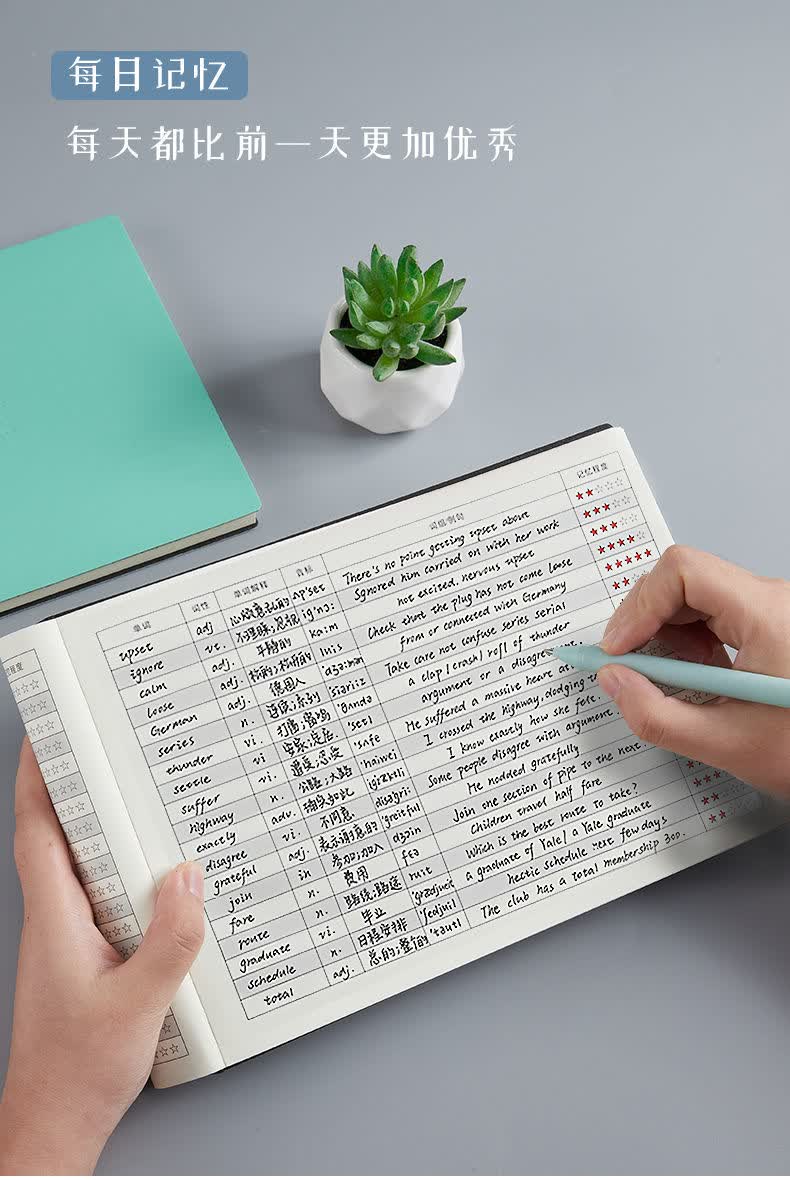 每日记忆
每天都比前一天更加优秀
单词 词性 单词解释 音标 词组/例句 记忆程度
upset adj 心烦意乱的 ʌp'set There's no point getting upset about
ignore vt. 不理睬;忽视 ig'nɔ: Ignored him carried on with her work
calm adj. 平静的 ka:m not excited. nervous upset
loose adj. lu:s Check that the plug has not come loose
German adj. 德国人 from or connected with Germany
series n. 连续;系列 Take care not confuse series serial
thunder vi. 打雷;雷鸣 a clap/crash/roll of thunder
settle vi. 定居 'setl argument or a
suffer vi. He suffered a massive heart
highway n. 公路;大路 'haiwei I crossed the highway, dodging
exactly adv. I know exactly how she
disagree vi. 不同意 Some people disagree with argument
grateful adj. 表示谢意的 'greitful He nodded gratefully
join 参加;加入 dʒɔin Join one section of pipe to the next.
fare n. 费用 Children travel half fare
route n. 路线;路途 ru:t Which is the best route to take?
graduate vi. 毕业 a graduate of Yale/a Yale graduate
schedule n. 日程安排 hectic schedule next few days
total adj. 总的;整个的 'təutl The club has a total membership 300.